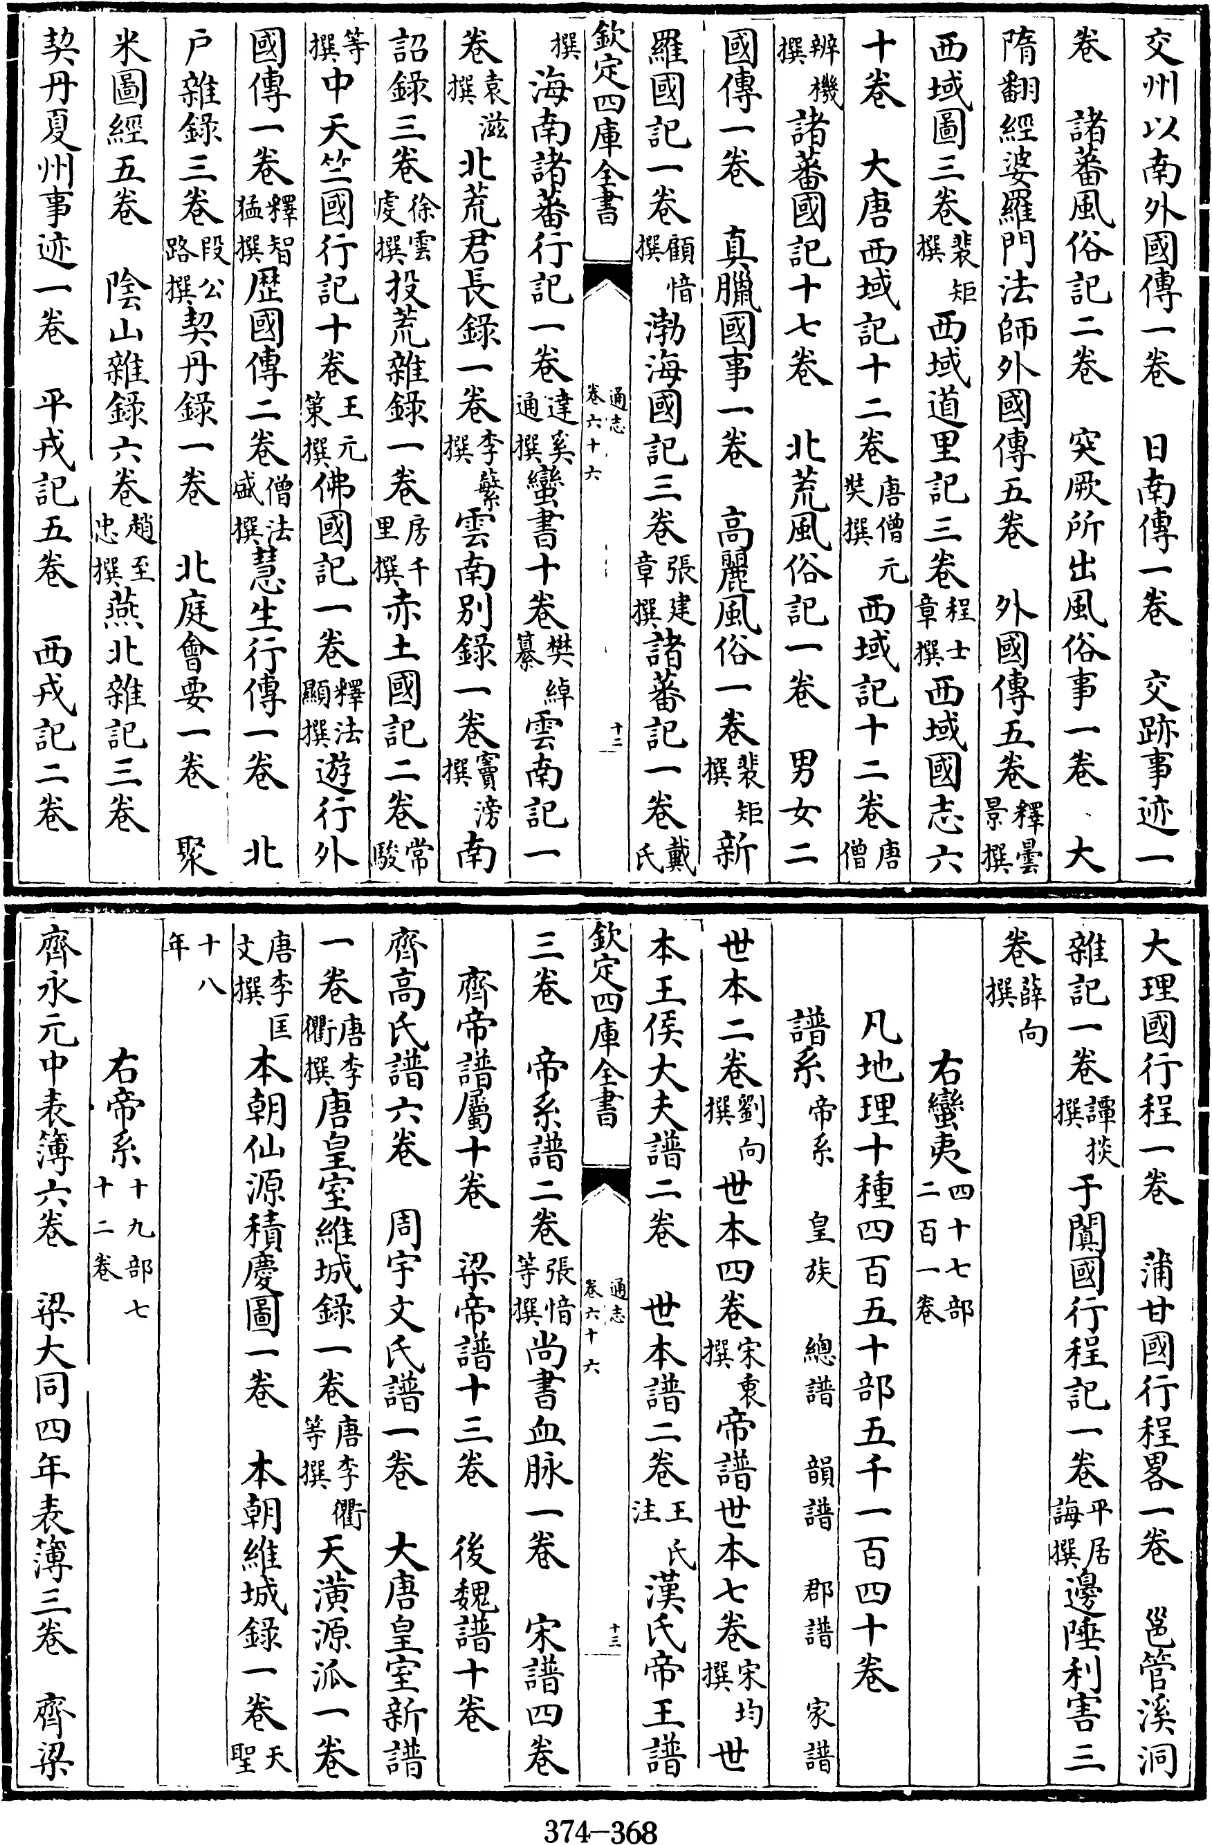 交州以南外國傳一卷　日南傳一卷　交跡事迹一
卷　諸蕃風俗記二卷　突厥所出風俗事一卷　大
隋翻經婆羅門法師外國傳五卷　外國傳五卷釋曇景撰
西域圖三卷裴矩撰西域道里記三卷程士章撰西域國志六
十卷　大唐西域記十二卷唐僧元奘撰西域記十二卷唐僧
辨機撰諸蕃國記十七卷　北荒風俗記一卷　男女二
國傳一卷　真臘國事一卷　高麗風俗一卷裴矩撰新
羅國記一卷顧愔撰渤海國記三卷張建章撰諸蕃記一卷戴氏
欽定四庫全書　通志卷六十六　十二
撰海南諸蕃行記一卷達奚通撰蠻書十卷樊綽纂雲南記一
卷袁滋撰北荒君長錄一卷李繁撰雲南別錄一卷竇滂撰南
詔錄三卷徐雲虔撰投荒雜錄一卷房千里撰赤土國記二卷常駿
等撰中天竺國行記十卷王元策撰佛國記一卷釋法顯撰遊行外
國傳一卷釋智猛撰歷國傳二卷僧法盛撰慧生行傳一卷　北
户雜錄三卷段公路撰契丹錄一卷　北庭會要一卷　聚
米圖經五卷　陰山雜錄六卷趙至忠撰燕北雜記三卷
契丹夏州事迹一卷　平戎記五卷　西戎記二卷
大理國行程一卷　蒲甘國行程畧一卷　邕管溪洞
雜記一卷譚掞撰于闐國行程記一卷平居誨撰邊陲利害三
卷薛向撰
右蠻夷四十七部二百一卷
凡地理十種四百五十部五千一百四十卷
譜系　帝系　皇族　總譜　韻譜　郡譜　家譜
世本二卷劉向撰世本四卷宋衷撰帝譜世本七卷宋均撰世
本王侯大夫譜二卷　世本譜二卷王氏注漢氏帝王譜
欽定四庫全書　通志卷六十六　十三
三卷　帝系譜二卷張愔等撰尚書血脉一卷　宋譜四卷
齊帝譜屬十卷　梁帝譜十三卷　後魏譜十卷
齊高氏譜六卷　周宇文氏譜一卷　大唐皇室新譜
一卷唐李衢撰唐皇室維城錄一卷唐李衢等撰天潢源派一卷
唐李匡文撰本朝仙源積慶圖一卷　本朝維城錄一卷天聖
十八年
右帝系十九部七十二卷
齊永元中表簿六卷　梁大同四年表簿三卷　齊梁
374-368